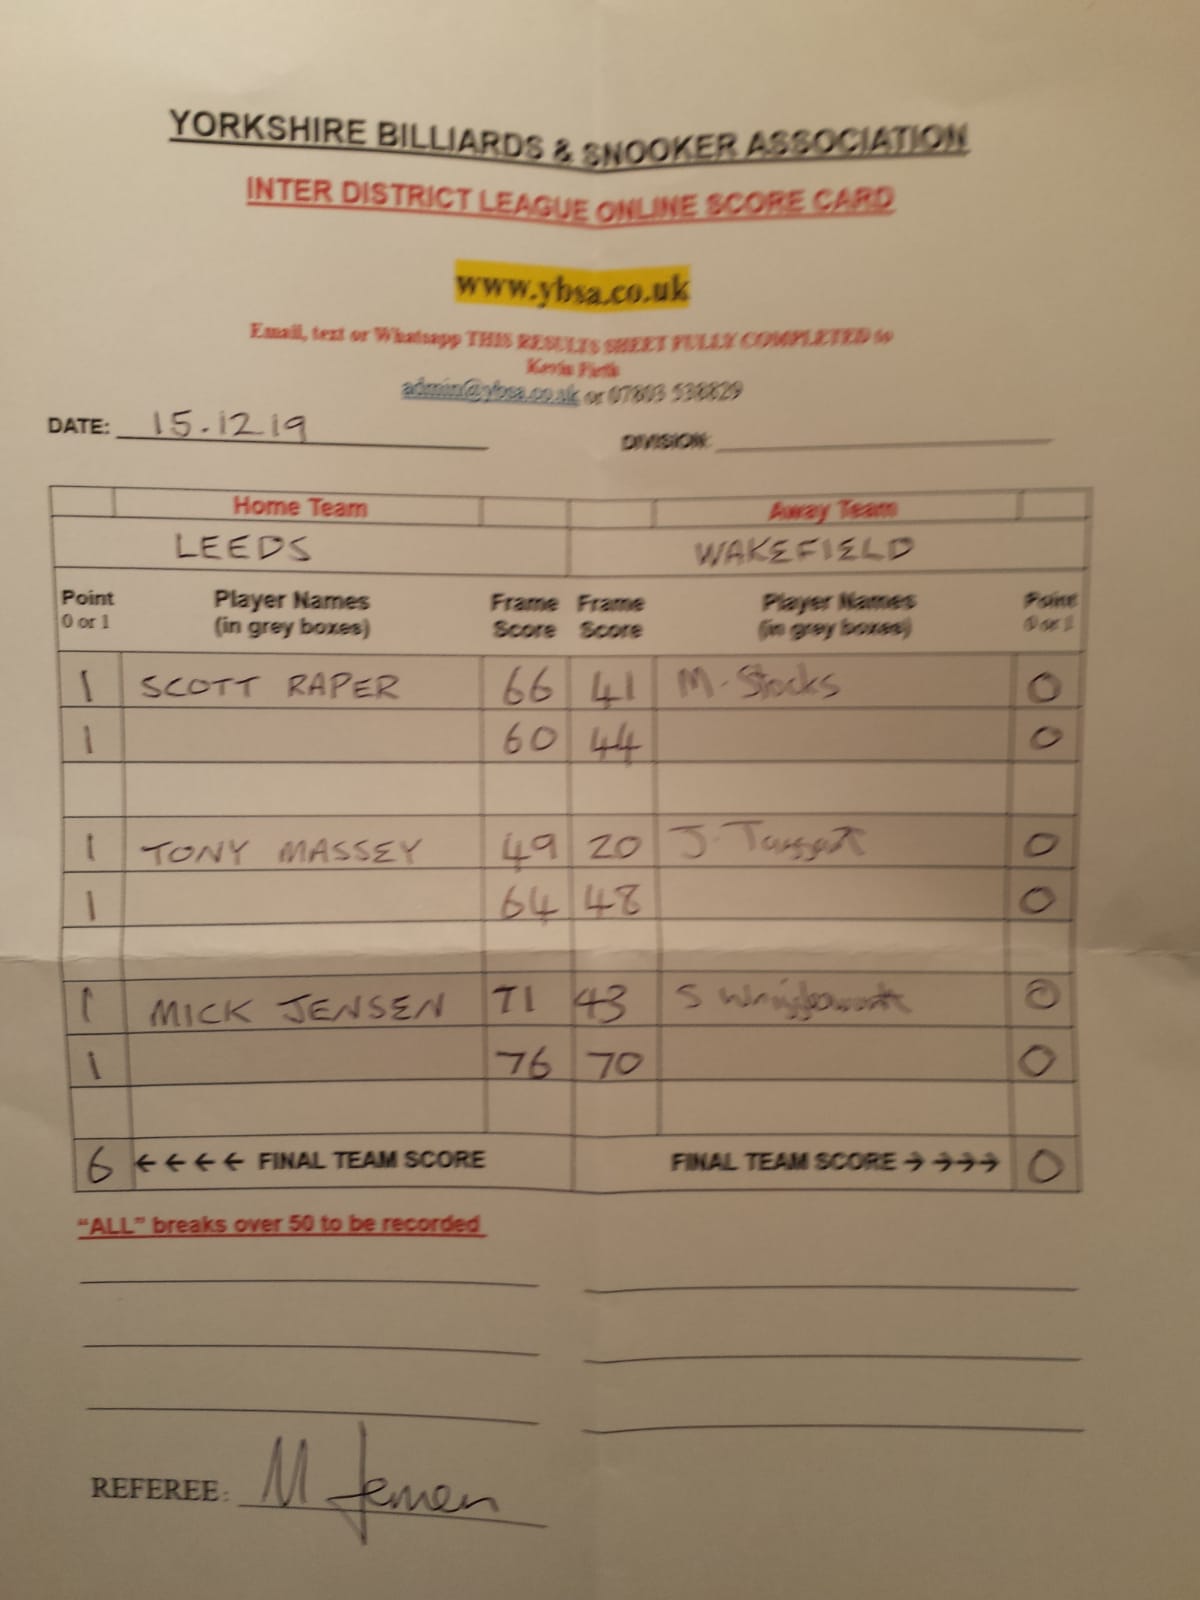 YORKSHIRE BILLIARDS & SNOOKER ASSOCIATION
INTER DISTRICT LEAGUE ONLINE SCORE CARD
www.ybsa.co.uk
Email, text or Whatsapp THIS RESULTS SHEET FULLY COMPLETED to
Kevin Firth
admin@ybsa.co.uk or 07803 538829
DATE: 15.12.19 DIVISION:
Home Team Away Team
LEEDS WAKEFIELD
Point Player Names Frame Frame Player Names Point
0 or 1 (in grey boxes) Score Score (in grey boxes) 0 or 1
1 SCOTT RAPER 66 41 M. Stocks 0
1 60 44 0
1 TONY MASSEY 49 20 J. Taggart 0
1 64 48 0
1 MICK JENSEN 71 43 S 0
1 76 70 0
6 ←←←← FINAL TEAM SCORE FINAL TEAM SCORE →→→→ 0
"ALL" breaks over 50 to be recorded
REFEREE: M Jensen